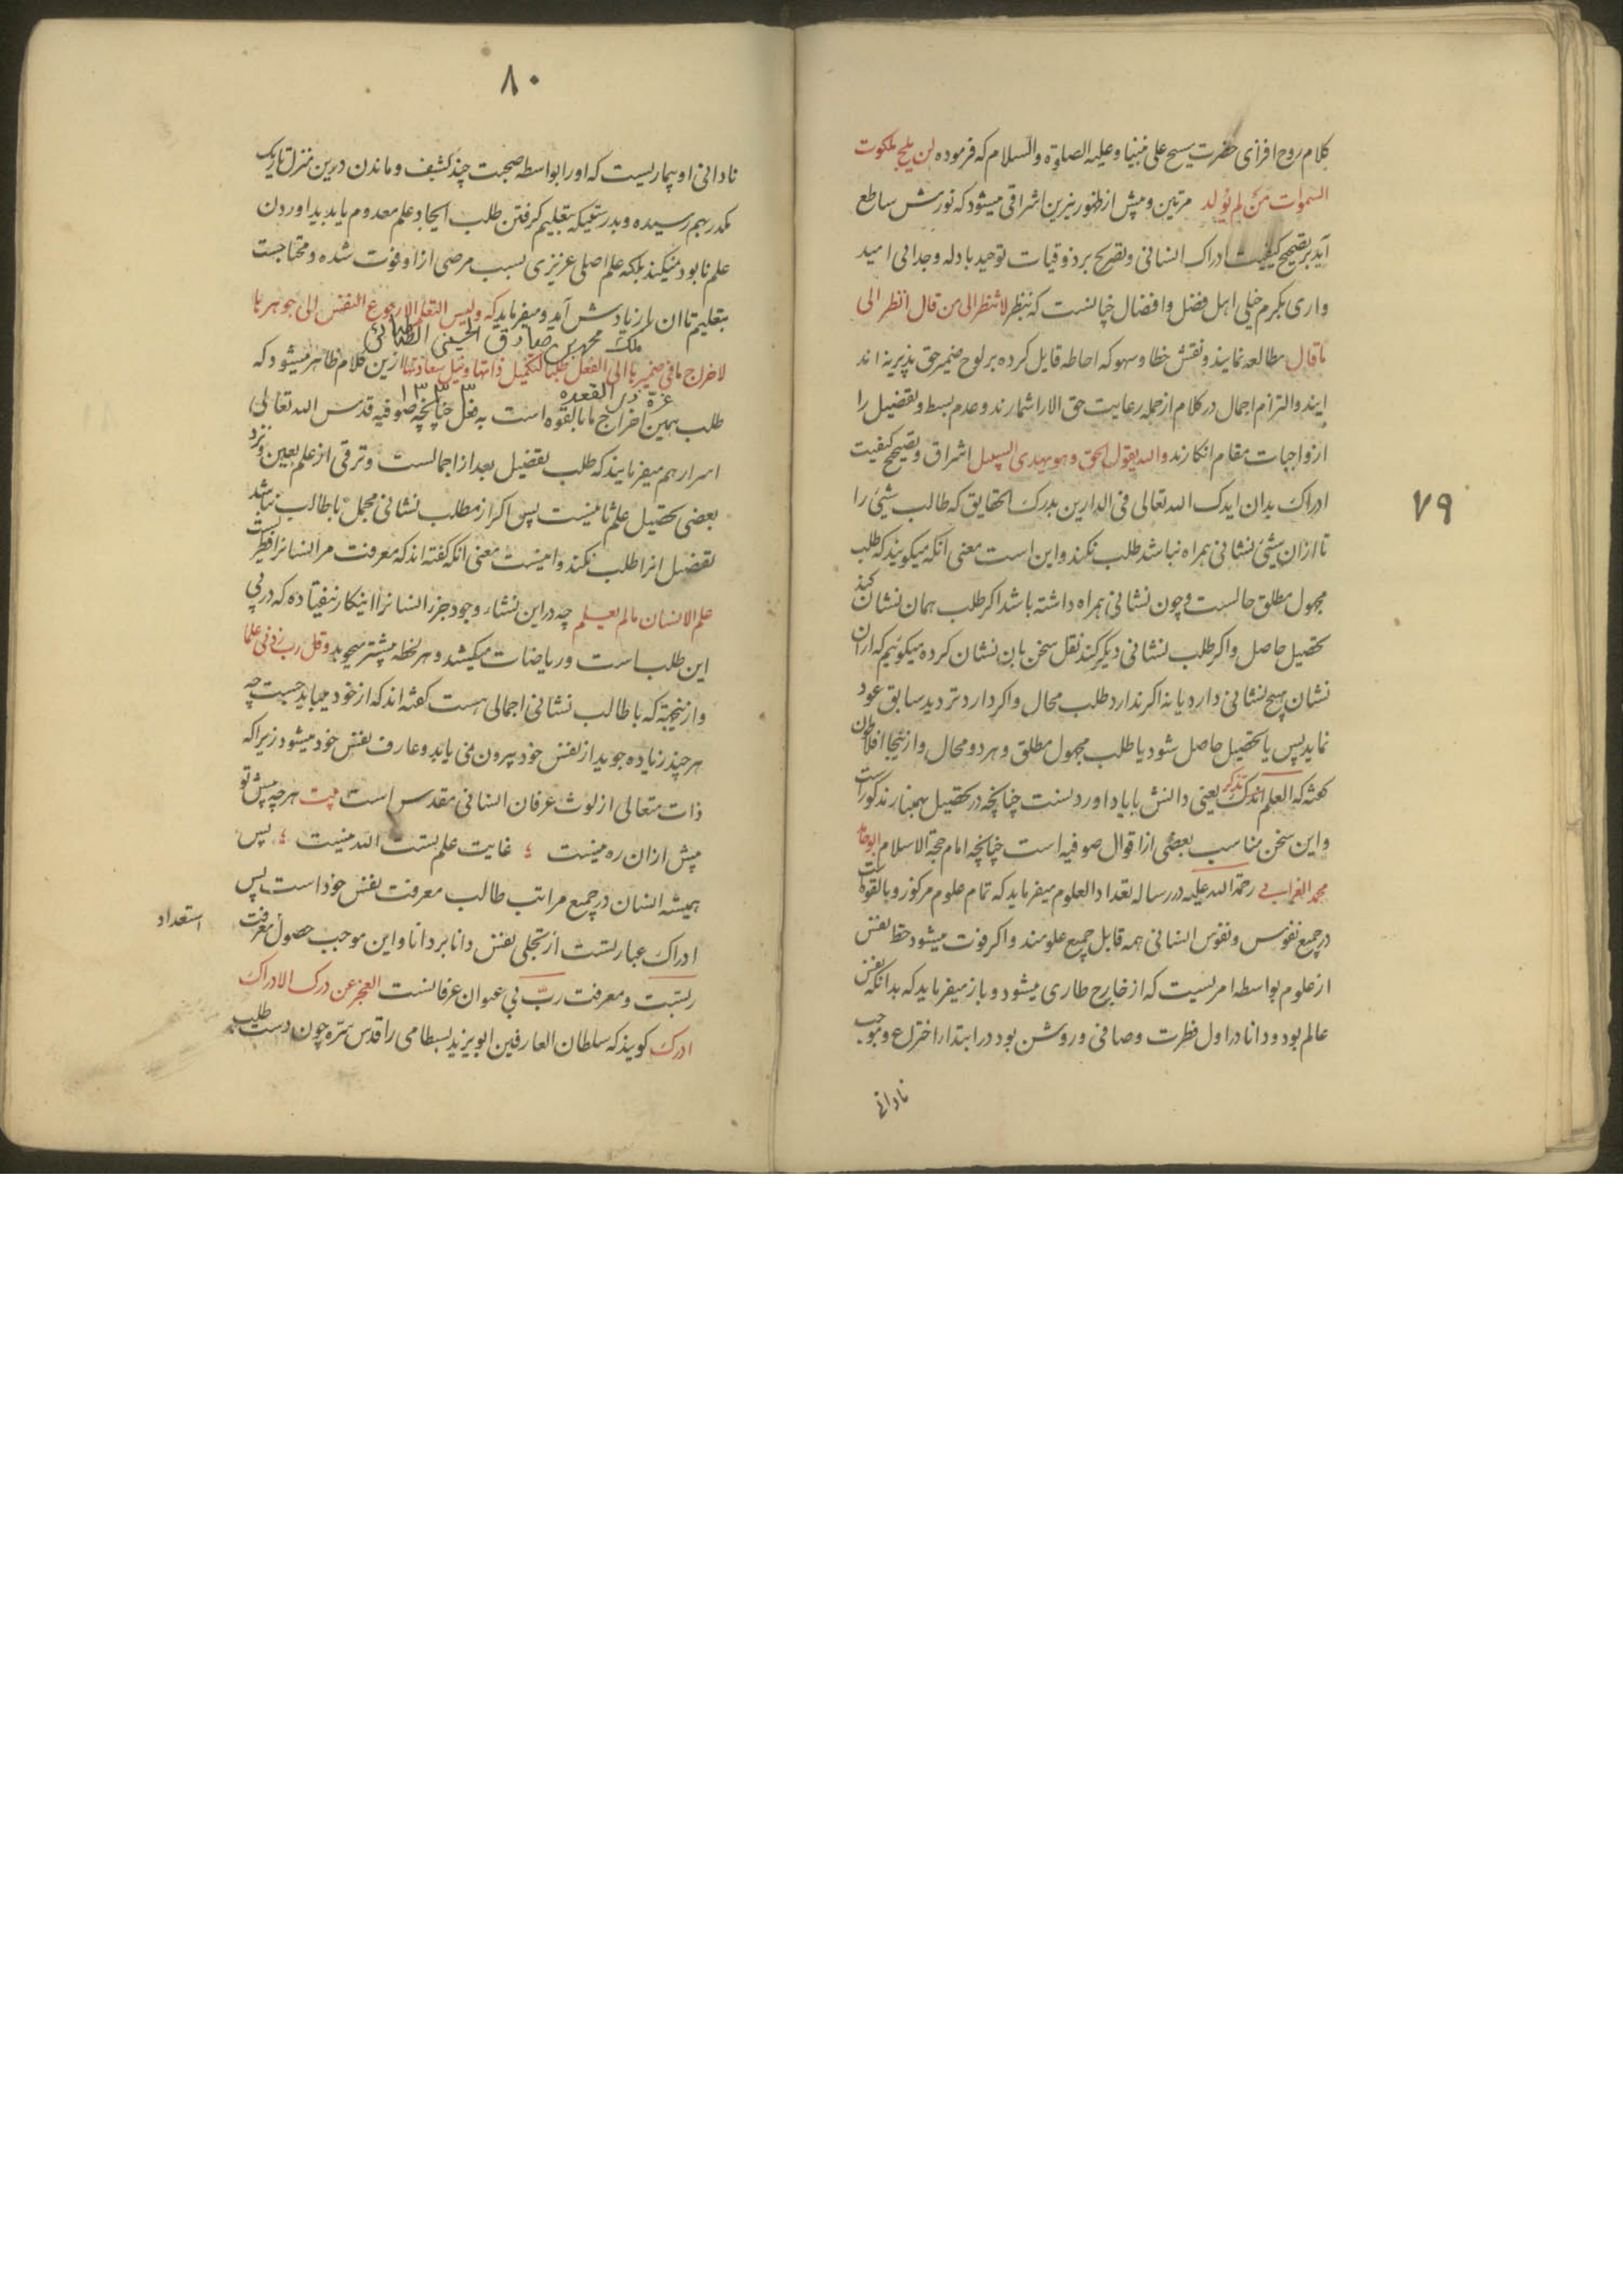 ۷۹
کلام روح افزای حضرت مسیح علی نبینا و علیه الصلوة والسلام که فرموده لن یلج ملکوت
السموات من لم یولد مرتین و پیش از ظهور نیرین اشراقی میشود که نورش ساطع
آید بر تصحیح کیفیت ادراک انسانی و تصریح بر ذوقیات توحید بادله وجدانی امید
واری بکرم خیلی اهل فضل و افضال چنانست که بنظر لا تنظر الی من قال انظر الی
ما قال مطالعه نمایند و نقش خطا و سهو که احاطه قایل کرده بر لوح ضمیر حق پذیر نه اند
ایند و التزام اجمال در کلام از جمله رعایت حق الا را شمارند و عدم بسط و تفصیل را
از واجبات مقام انکارند والله یقول الحق و هو یهدی السبیل اشراق و تصحیح کیفیت
ادراک بدان ایدک الله تعالی فی الدارین بدرک الحقایق که طالب شیئ را
تا ازان شیئ نشانی همراه نباشد طلب نکند و این است معنی آنکه میکویند که طلب
مجهول مطلق محالست و چون نشانی همراه داشته باشد اکر طلب همان نشان کند
تحصیل حاصل و اکر طلب نشانی دیکر کند نقل سخن بان نشان کرده میکوئیم که ازان
نشان هیچ نشانی دارد یا نه اکر ندارد طلب محال و اکر دارد تردید سابق عود
نماید پس یا تحصیل حاصل شود یا طلب مجهول مطلق و هر دو محال و ازینجا افلاطون
کفته که العلم تذکر یعنی دانش بایاد اوردنست چنانچه در تحصیل
و این سخن مناسب بعضی از اقوال صوفیه است چنانچه امام حجة الاسلام ابوحامد
محمد الغزالی رحمة الله علیه در رساله تعداد العلوم میفرماید که تمام علوم مرکوز و بالقوة است
در جمیع نفوس و نفوس انسانی همه قابل جمیع علومند و اکر فوت میشود حظ نفس
از علوم بواسطه امریست که از خارج طاری میشود و باز میفرماید که بدانکه نفس
عالم بود و دانا در اول فطرت و صافی و روشن بود در ابتدا اختراع و موجب
نادانی
۸۰
نادانی او بیماریست که او را بواسطه صحبت جسد کثیف و ماندن درین منزل تاریک
مکدر بهم رسیده و بدرستیکه بتعلیم کرفتن طلب ایجاد علم معدوم یا پدید اوردن
علم نابود نمیکند بلکه علم اصلی غریزی بسبب مرضی ازا و فوت شده و محتاجست
بتعلیم تا ان باز یادش آید و میفرماید که و لیس التعلم الا رجوع النفس الی جوهرها
ملک محمد بن صادق الحسینی الطباطبائی
لاخراج ما فی ضمیرها الی الفعل طلبا لتکمیل ذاتها و نیل سعادتها ازین کلام ظاهر میشود که
غرة ذی القعده
طلب همین اخراج ما بالقوه است به فعل چنانچه صوفیه قدس الله تعالی
اسرارهم میفرمایند که طلب تفصیل بعد از اجمالست و ترقی از علم بعین و نزد
بعضی تحصیل علم ثانیست پس اکر از مطلب نشانی مجمل با طالب نباشد
تفصیل انرا طلب نکند و اینست معنی انکه کفته اند که معرفت مر انسانرا فطریست
علم الانسان ما لم یعلم چه در این نشاء وجود جز انسانرا اینکار نیفتاده که در پی
این طلب است و ریاضات میکشد و هر لحظه بیشتر میجوید و قل رب زدنی علما
و ازینجهته که با طالب نشانی اجمالی هست کفته اند که از خود میباید جست چه
هر چند زیاده جوید از نفس خود بیرون نمی یابد و عارف نفس خود میشود زیرا که
ذات متعالی از لوث عرفان انسانی مقدس است بیت هر چه پیش تو
پیش ازان ره نیست غایت علم تست الله نیست پس
همیشه انسان در جمیع مراتب طالب معرفت نفس خود است پس
ادراک عبارتست از تجلی نفس دانا بر دانا و این موجب حصول معرفت
استعداد
ربتست و معرفت رب بی عنوان عرفانست العجز عن درک الادراک
ادراک کویند که سلطان العارفین ابو یزید بسطامی را قدس سره چون دست طلب